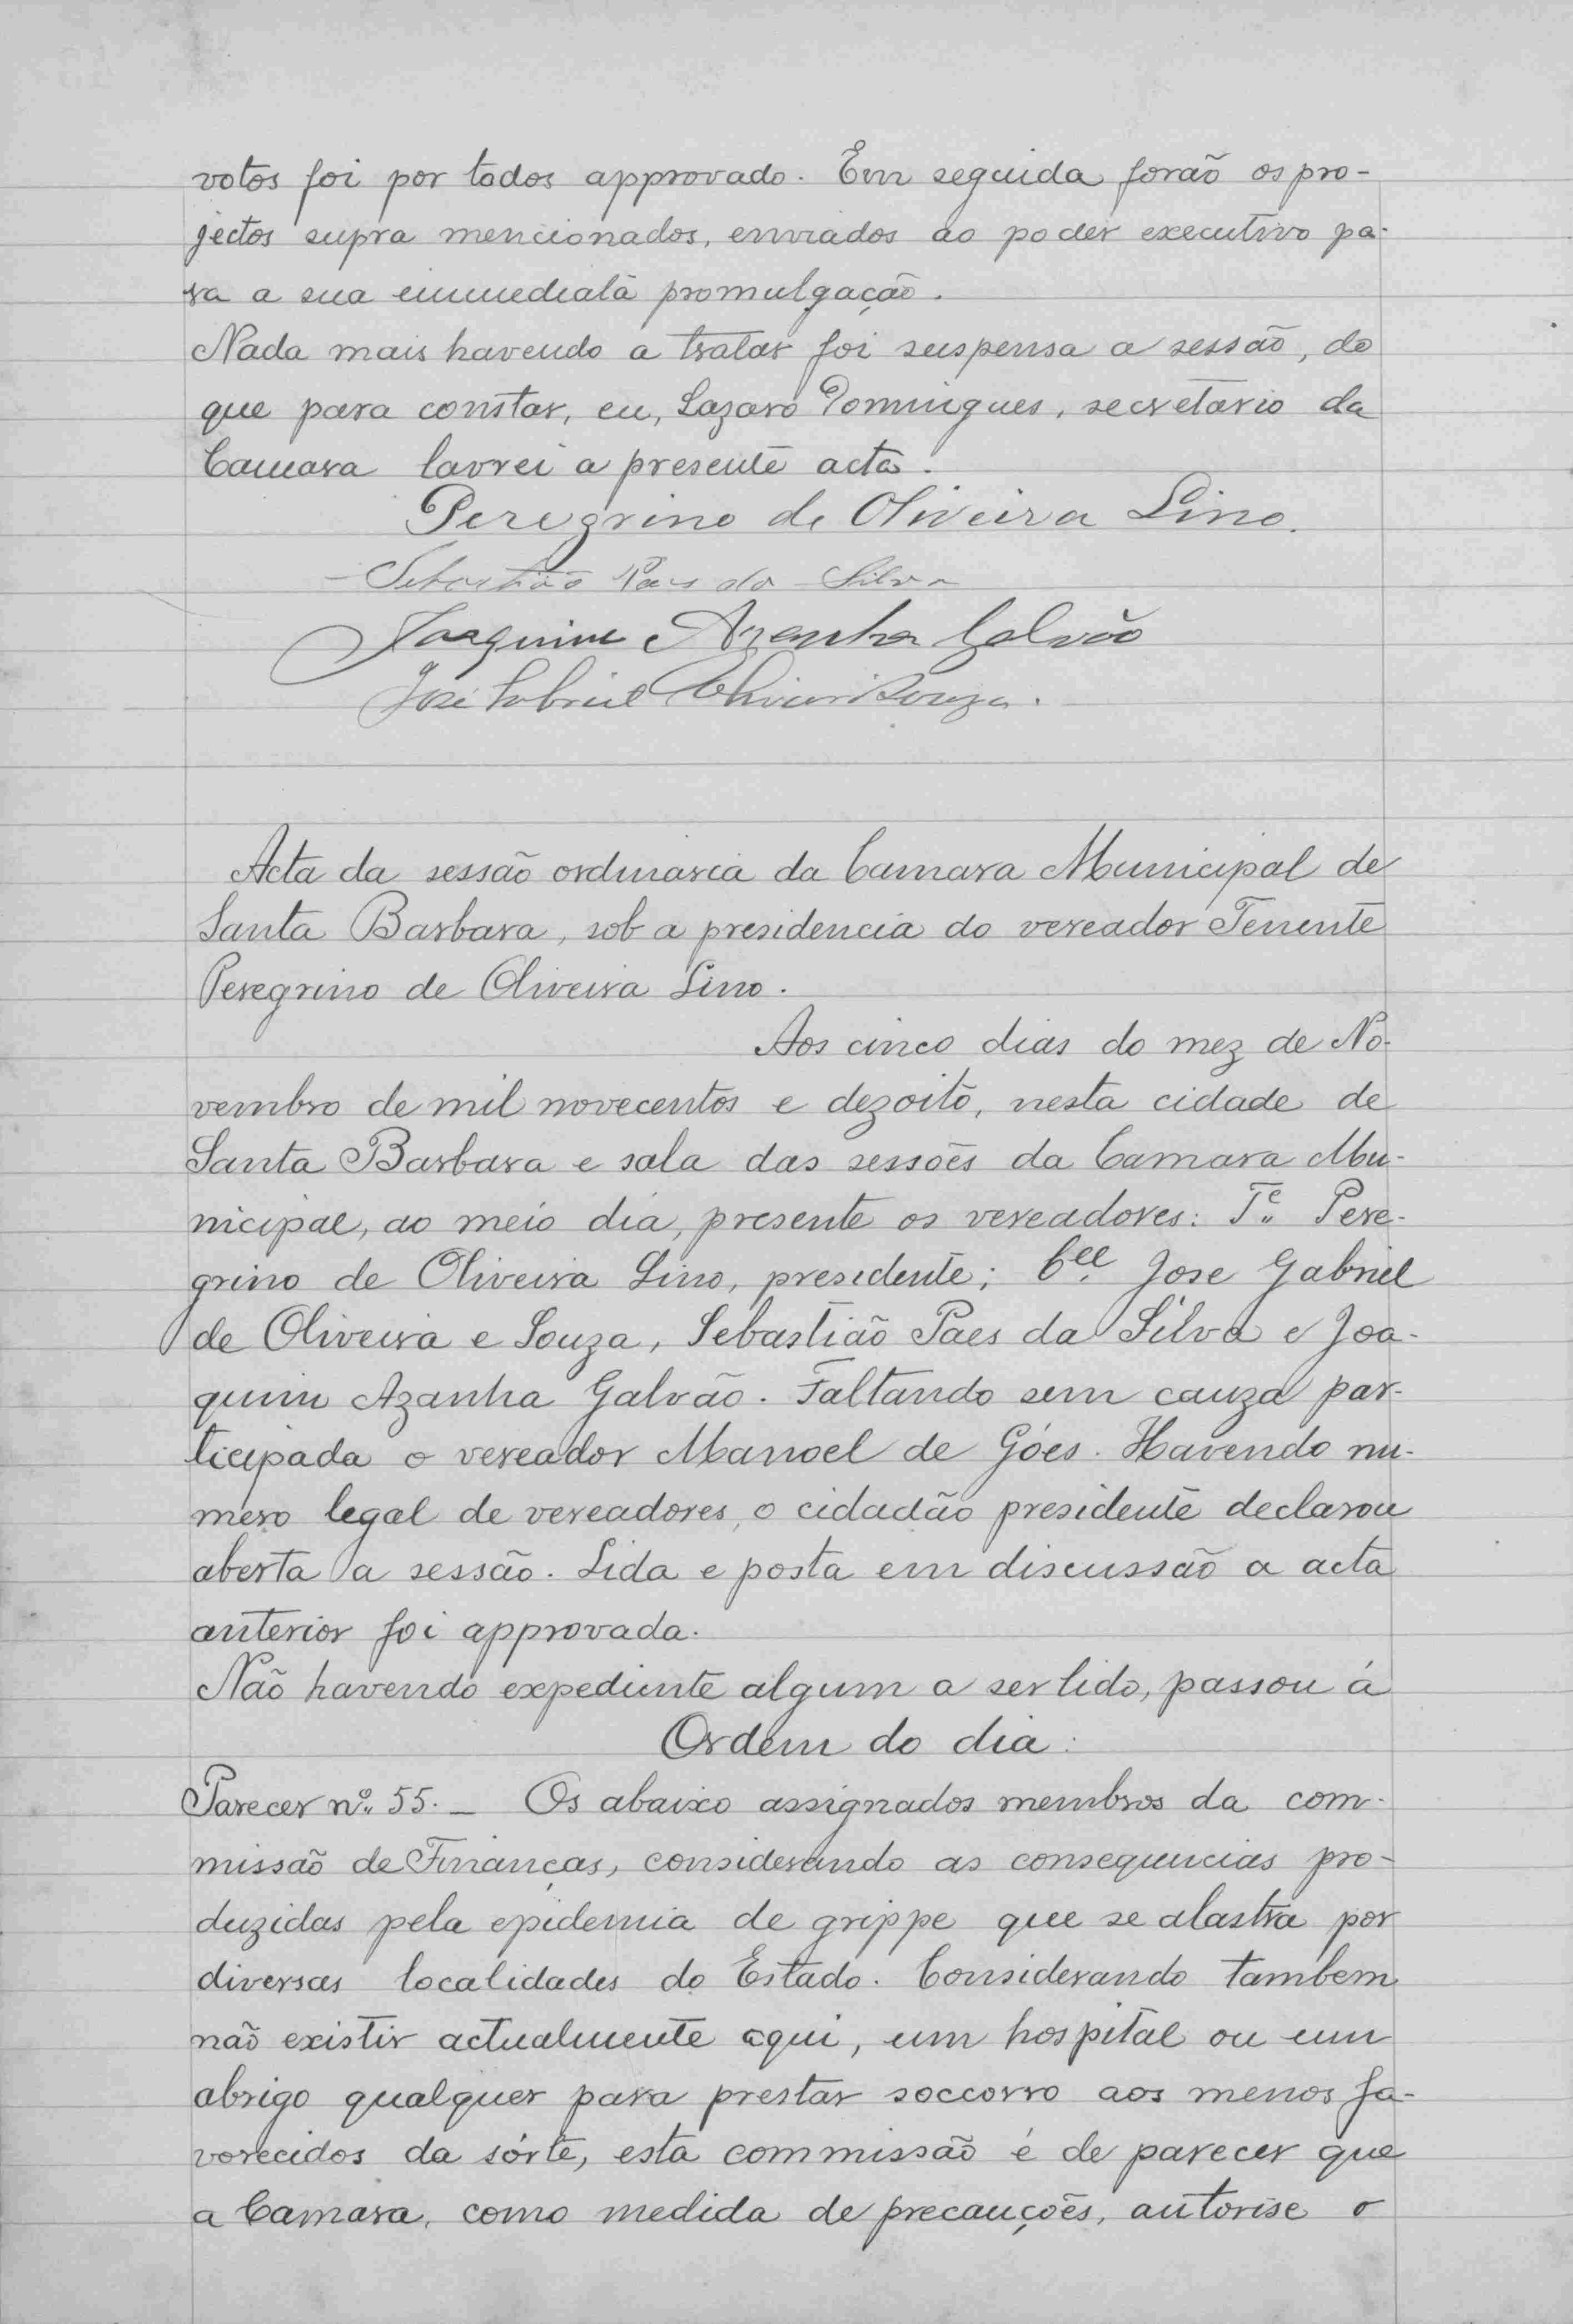 votos foi por todos approvado. Em seguida forão os pro-
jectos supra mencionados, enviados ao poder executivo pa-
ra a sua immediata promulgação.
Nada mais havendo a tratar foi suspensa a sessão, do
que para constar, eu, Lazaro Domingues, secretario da
Camara lavrei a presente acta.
Peregrino de Oliveira Lino.
Sebastião Paes da Silva
Joaquim Azanha Galvão
José Gabriel Oliveira Souza.
Acta da sessão ordinaria da Camara Municipal de
Santa Barbara, sob a presidencia do vereador Tenente
Peregrino de Oliveira Lino.
Aos cinco dias do mez de No-
vembro de mil novecentos e dezoito, nesta cidade de
Santa Barbara e sala das sessões da Camara Mu-
nicipal, ao meio dia, presente os vereadores: Te. Pere-
grino de Oliveira Lino, presidente; Cel. Jose Gabriel
de Oliveira e Souza, Sebastião Paes da Silva e Joa-
quim Azanha Galvão. Faltando sem cauza par-
ticipada o vereador Manoel de Góes. Havendo nu-
mero legal de vereadores, o cidadão presidente declarou
aberta a sessão. Lida e posta em discussão a acta
anterior foi approvada.
Não havendo expediente algum a ser lido, passou á
Ordem do dia:
Parecer nº 55. _ Os abaixo assignados membros da com-
missão de Finanças, considerando as consequencias pro-
duzidas pela epidemia de grippe que se alastra por
diversas localidades do Estado. Considerando tambem
não existir actualmente aqui, um hospital ou um
abrigo qualquer para prestar soccorro aos menos fa-
vorecidos da sórte, esta commissão é de parecer que
a Camara, como medida de precauções, autorise o